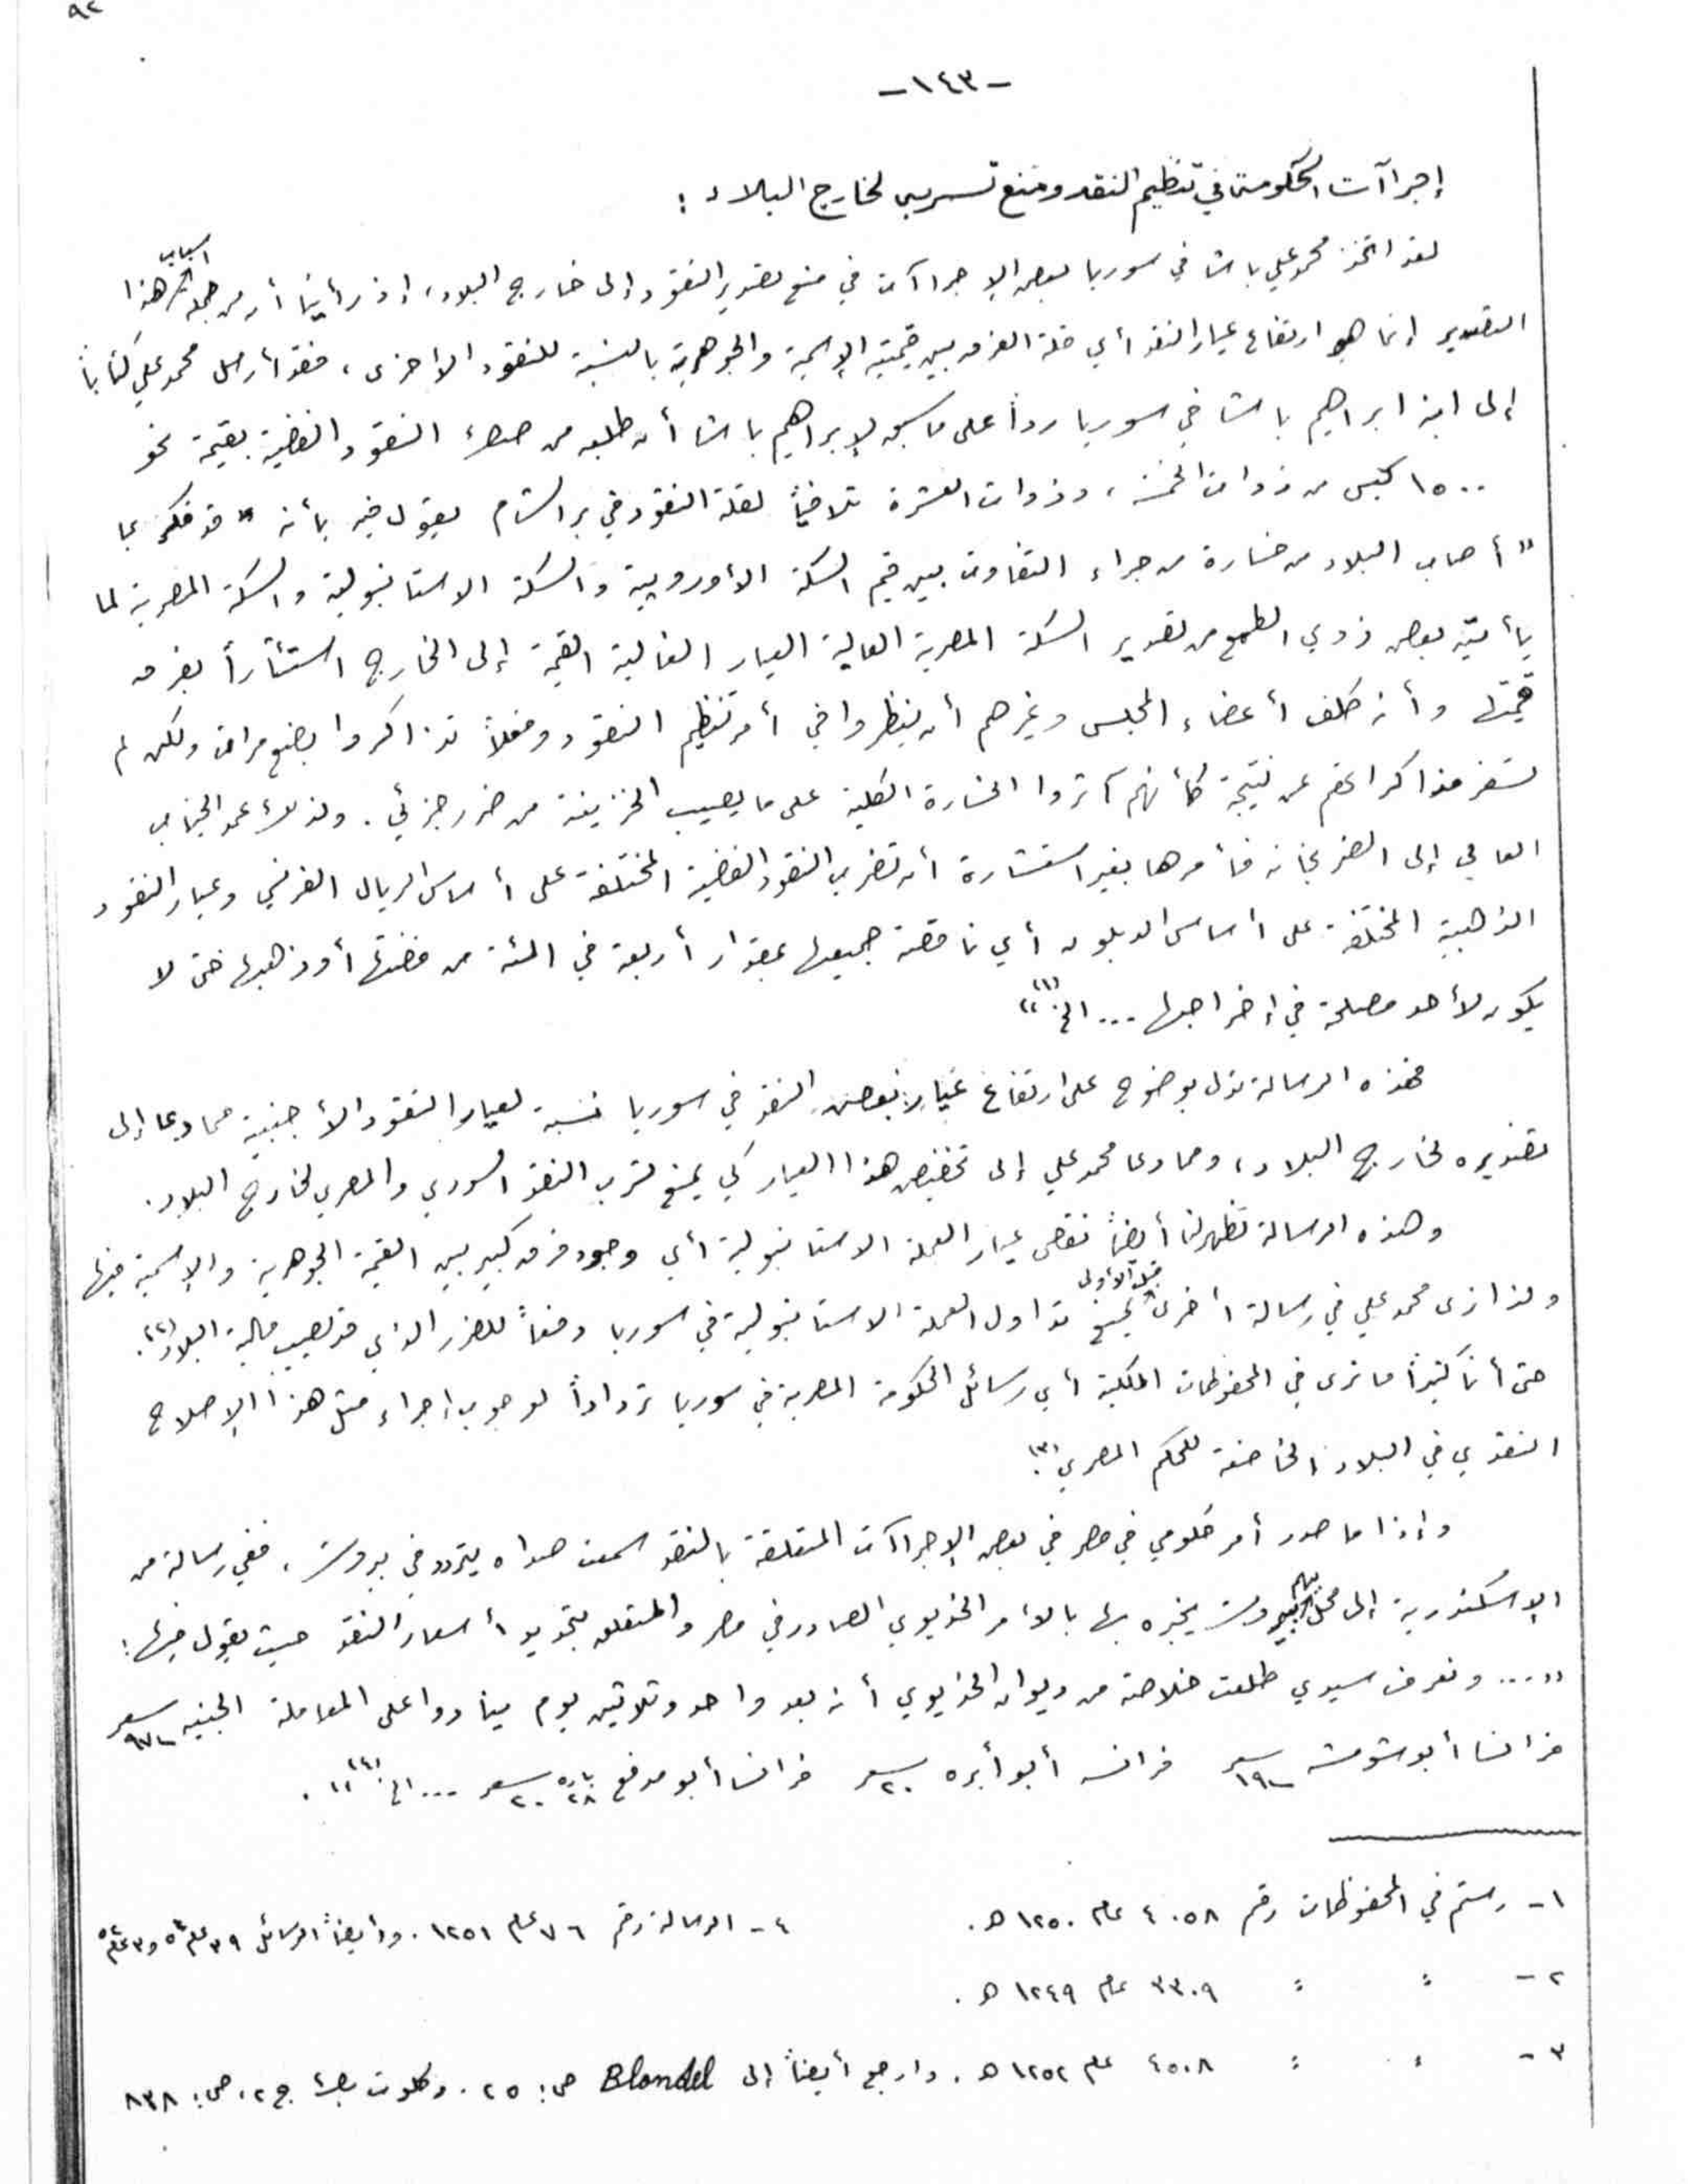 ٩٢
-١٤٣-
إجراآت الحكومة في تنظيم النقد ومنع تسربه لخارج البلاد :
لقد اتخذ محمد علي باشا في سوريا بعض الإجراآت في منع تصدير النقود إلى خارج البلاد، إذ رأينا أن من جملة أسباب هذا
التصدير إنما هو ارتفاع عيار النقد أي قلة الفرق بين قيمته الإسمية والجوهرية بالنسبة للنقود الأخرى، فقد أرسل محمد علي كتاباً
إلى ابنه ابراهيم باشا في سوريا رداً على ما سبق لإبراهيم باشا أن طلبه من صك النقود الفضية بقيمة نحو
١٥٠٠ كيس من ذوات الخمسة، وذوات العشرة تلافياً لقلة النقود في بر الشام يقول فيه بأنه " قد فكر بما
" أصاب البلاد من خسارة من جراء التفاوت بين قيم السكة الأوروبية والسكة الاستانبولية والسكة المصرية لما
يأتيه بعض ذوي الطمع من تصدير السكة المصرية العالية العيار الغالية القيمة إلى الخارج استئثاراً بفرق
قيمتها وأنه كلف أعضاء المجلس وغيرهم أن ينظروا في أمر تنظيم النقود وفعلاً تذاكروا بضع مرات ولكن لم
تسفر مذاكراتهم عن نتيجة كأنهم آثروا الخسارة الكلية على ما يصيب الخزينة من ضرر جزئي. ولذلك عمد الجناب
العالي إلى الضربخانه فأمرها بغير استشارة أن تضرب النقود الفضية المختلفة على أساس الريال الفرنسي وعيار النقود
الذهبية المختلفة على أساس الدبلون أي ناقصة جميعها بمقدار أربعة في المئة من فضتها أو ذهبها حتى لا
يكون لأحد مصلحة في إخراجها ... الخ"(١)
فهذه الرسالة تدل بوضوح على ارتفاع عيار بعض النقد في سوريا نسبة لعيار النقود الأجنبية مما دعا إلى
تصديره لخارج البلاد، ومما دعا محمد علي إلى تخفيض هذا العيار كي يمنع تسرب النقد السوري والمصري لخارج البلاد.
وهذه الرسالة تظهر لنا أيضاً نقص عيار العملة الاستانبولية أي وجود فرق كبير بين القيمة الجوهرية والإسمية فيها
ولذا نرى محمد علي في رسالة أخرى قبل الأولى يمنع تداول العملة الاستانبولية في سوريا دفعاً للضرر الذي قد يصيب مالية البلاد(٢).
حتى أنا كثيراً ما نرى في المحفوظات الملكية أي رسائل الحكومة المصرية في سوريا ترداداً لوجوب إجراء مثل هذا الإصلاح
النقدي في البلاد الخاضعة للحكم المصري(٣).
وإذا ما صدر أمر حكومي في مصر في بعض الإجراآت المتعلقة بالنقد سمعت صداه يتردد في بيروت. ففي رسالة من
الإسكندرية إلى محل بيهم بيروت يخبره بها بالأمر الخديوي الصادر في مصر والمتعلق بتحديد أسعار النقد حيث يقول فيها:
".... ونعرف سيدي طلعت خلاصة من ديوان الخديوي أنه بعد واحد وثلاثين يوم ينادوا على المعاملة الجنيه سعر ٩٧
فرانسا أبو شوشه سعر ١٩ فرانسه أبو أبره سعر ٢٠ فرانسا أبو مدفع باره ٢٨ سعر ٢٠ ... الخ"(٤).
١- رستم في المحفوظات رقم ٤٠٥٨ عام ١٢٥٠ هـ.
٢- " " ٣٣٠٩ عام ١٢٤٩ هـ.
٣- " " ٤٥٠٨ عام ١٢٥٢ هـ. وارجع أيضاً إلى Blondel ص: ٢٥. وكلوت بك ج ٢، ص: ٨٣٨
٤- الرسالة رقم ٧٦ عام ١٢٥١. وأيضاً الرسائل ٣٩ عام